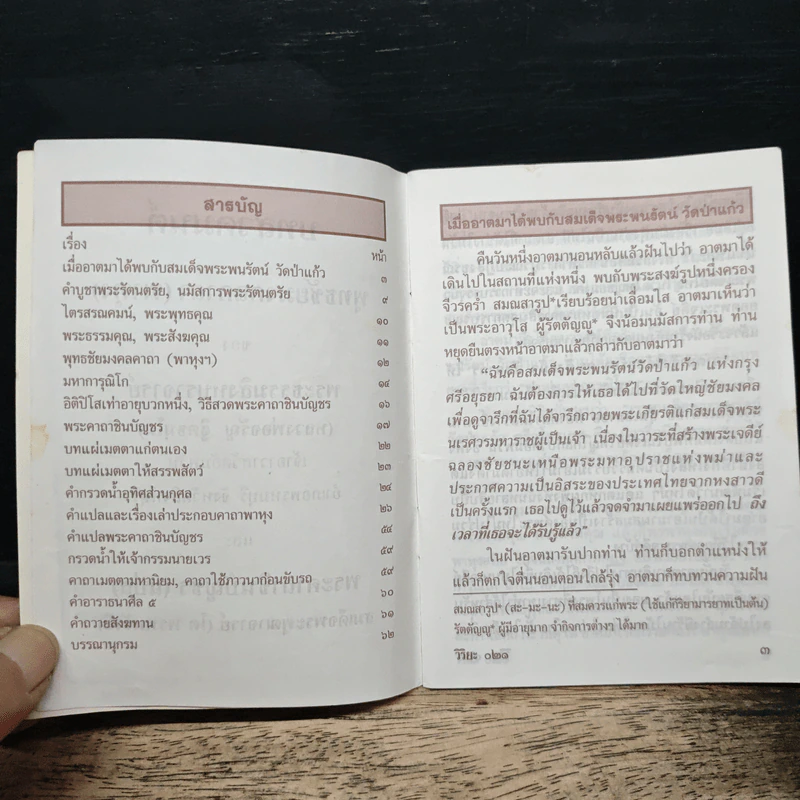 สารบัญ
เรื่อง หน้า
เมื่ออาตมาได้พบกับสมเด็จพระพนรัตน์ วัดป่าแก้ว ๓
คำบูชาพระรัตนตรัย, นมัสการพระรัตนตรัย ๙
ไตรสรณคมน์, พระพุทธคุณ ๑๐
พระธรรมคุณ, พระสังฆคุณ ๑๑
พุทธชัยมงคลคาถา (พาหุงฯ) ๑๒
มหาการุณิโก ๑๔
อิติปิโสเท่าอายุบวกหนึ่ง, วิธีสวดพระคาถาชินบัญชร ๑๖
พระคาถาชินบัญชร ๑๗
บทแผ่เมตตาแก่ตนเอง ๒๒
บทแผ่เมตตาให้สรรพสัตว์ ๒๓
คำกรวดน้ำอุทิศส่วนกุศล ๒๔
คำแปลและเรื่องเล่าประกอบคาถาพาหุง ๒๖
คำแปลพระคาถาชินบัญชร ๕๔
กรวดน้ำให้เจ้ากรรมนายเวร ๕๙
คาถาเมตตามหานิยม, คาถาใช้ภาวนาก่อนขับรถ ๕๙
คำอาราธนาศีล ๕ ๖๐
คำถวายสังฆทาน ๖๑
บรรณานุกรม ๖๒
เมื่ออาตมาได้พบกับสมเด็จพระพนรัตน์ วัดป่าแก้ว
คืนวันหนึ่งอาตมานอนหลับแล้วฝันไปว่า อาตมาได้
เดินไปในสถานที่แห่งหนึ่ง พบกับพระสงฆ์รูปหนึ่งครอง
จีวรคร่ำ สมณสารูป*เรียบร้อยน่าเลื่อมใส อาตมาเห็นว่า
เป็นพระอาวุโส ผู้รัตตัญญู* จึงน้อมนมัสการท่าน ท่าน
หยุดยืนตรงหน้าอาตมาแล้วกล่าวกับอาตมาว่า
“ฉันคือสมเด็จพระพนรัตน์วัดป่าแก้ว แห่งกรุง
ศรีอยุธยา ฉันต้องการให้เธอได้ไปที่วัดใหญ่ชัยมงคล
เพื่อดูจารึกที่ฉันได้จารึกถวายพระเกียรติแก่สมเด็จพระ
นเรศวรมหาราชผู้เป็นเจ้า เนื่องในวาระที่สร้างพระเจดีย์
ฉลองชัยชนะเหนือพระมหาอุปราชแห่งพม่าและ
ประกาศความเป็นอิสระของประเทศไทยจากหงสาวดี
เป็นครั้งแรก เธอไปดูไว้แล้วจดจำมาเผยแพร่ออกไป ถึง
เวลาที่เธอจะได้รับรู้แล้ว”
ในฝันอาตมารับปากท่าน ท่านก็บอกตำแหน่งให้
แล้วก็ตกใจตื่นนอนตอนใกล้รุ่ง อาตมาก็ทบทวนความฝัน
สมณสารูป* (สะ-มะ-นะ) ที่สมควรแก่พระ (ใช้แก่กิริยามารยาทเป็นต้น)
รัตตัญญู* ผู้มีอายุมาก จำกิจการต่างๆ ได้มาก
วิริยะ ๐๒๑ ๓